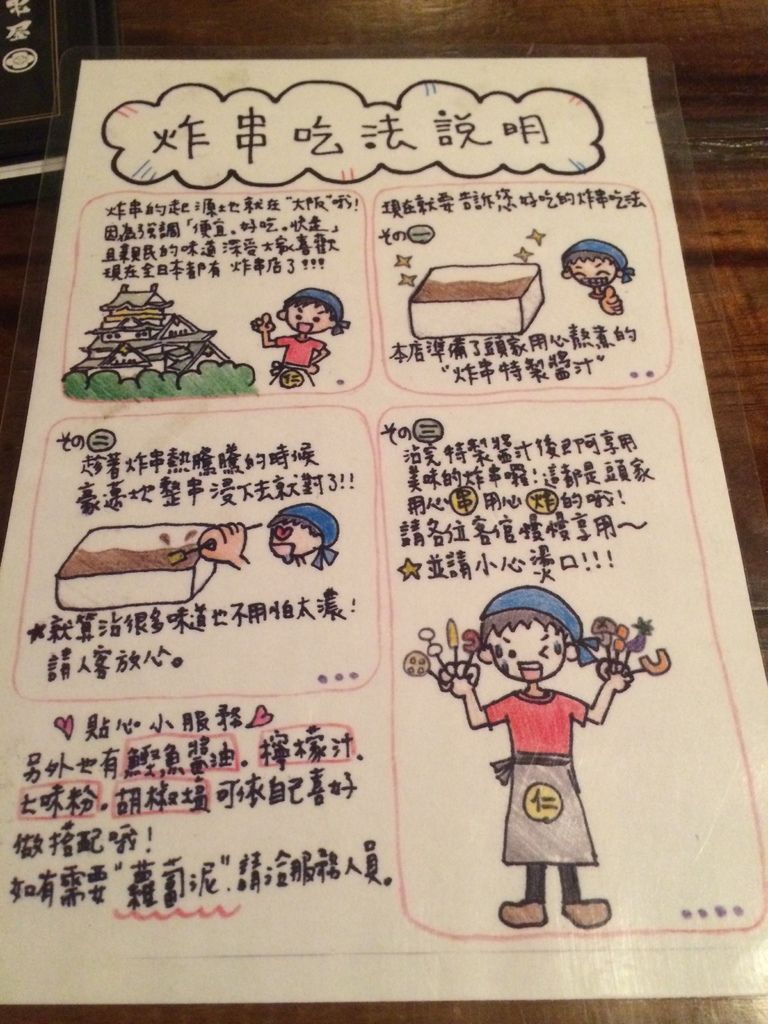 炸串吃法説明
炸串的起源地就在"大阪"哦!
因為強調「便宜.好吃.快速」
且親民的味道深受大家喜歡
現在全日本都有炸串店了!!!
仁
現在就要告訴您好吃的炸串吃法
その一
本店準備了頭家用心熬煮的
"炸串特製醬汁"
その二
趁著炸串熱騰騰的時候
豪邁地整串浸下去就對了!!
★就算沾很多味道也不用怕太濃!
請人客放心。
その三
沾完特製醬汁後即可享用
美味的炸串囉!這都是頭家
用心串用心炸的哦!
請各位客倌慢慢享用~
★並請小心燙口!!!
仁
♡貼心小服務♡
另外也有鰹魚醬油。檸檬汁.
七味粉。胡椒塩可依自己喜好
做搭配哦!
如有需要"蘿蔔泥"請洽服務人員。